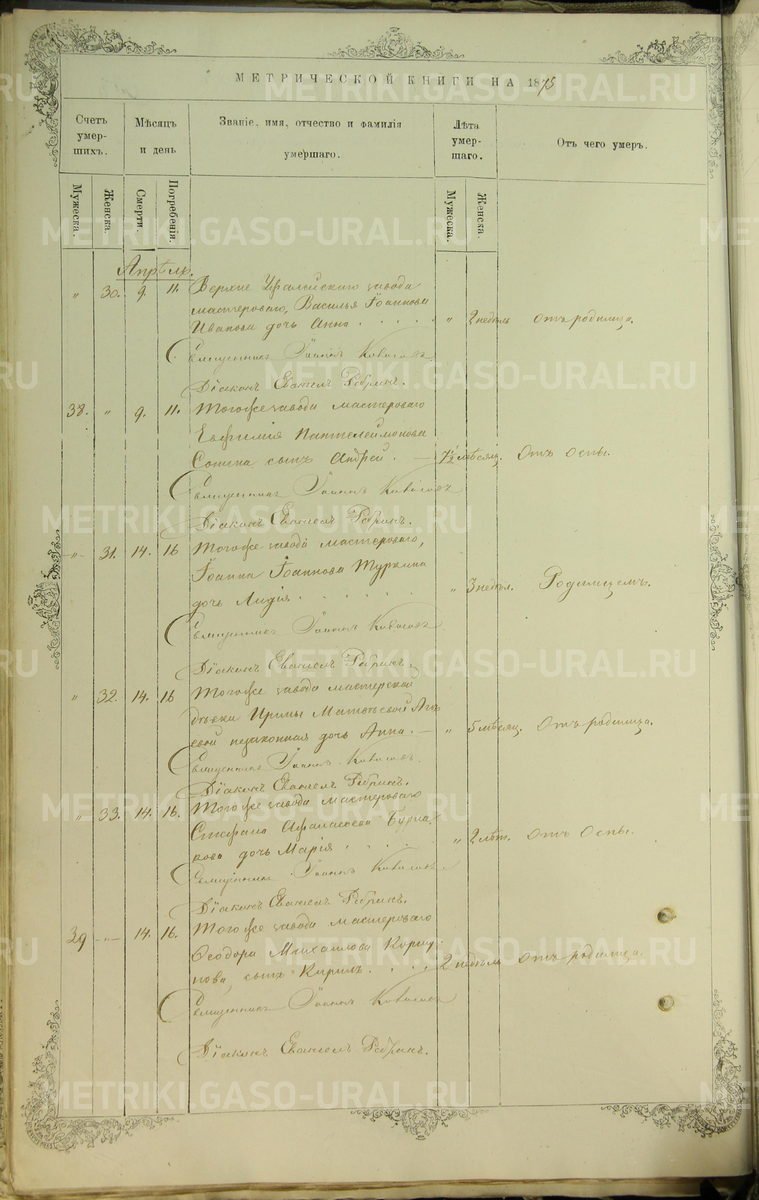 МЕТРИЧЕСКОЙ КНИГИ НА 1875
Счетъ умер-шихъ.
Мѣсяцъ и день
Званіе, имя, отчество и фамилія умершаго.
Лѣта умер-шаго.
Отъ чего умеръ.
Мужеска.
Женска.
Смерти.
Погребенія.
Мужеска.
Женска.
Апрѣля.
" 30. 9. 11. Верхне Уфалейскаго завода
мастероваго, Василья Іоаннова
Иванова дочь Анна . . . . " 2 недѣль Отъ родимца.
Священникъ Іоаннъ
Діаконъ Евангелъ
38. " 9. 11. Тогоже завода мастероваго
Евфимія Пантелеймонова
сынъ Андрей. — 7½ мѣсяц. Отъ Оспы.
Священникъ Іоаннъ
Діаконъ Евангелъ
" 31. 14. 16 Тогоже завода мастероваго,
Іоанна Іоаннова Туркина
дочь Лидія . . . . . " 3 недѣл. Родимцемъ.
Священникъ Іоаннъ
Діаконъ Евангелъ
" 32. 14. 16 Тогоже завода мастерской
дѣвки Ирины Матвѣевой
незаконная дочь Анна. — " 5 мѣсяц. Отъ родимца.
Священникъ Іоаннъ
Діаконъ Евангелъ
" 33. 14. 16. Тогоже завода мастероваго
Стефана Афанасьева Бурма-
кова дочь Марія . . . " 2 лѣт. Отъ Оспы.
Священникъ Іоаннъ
Діаконъ Евангелъ
39 " 14. 16. Тогоже завода мастероваго
Ѳеодора Михаилова
сынъ Кирилъ . . . . 2 недѣль Отъ родимца.
Священникъ Іоаннъ
Діаконъ Евангелъ
METRIKI.GASO-URAL.RU